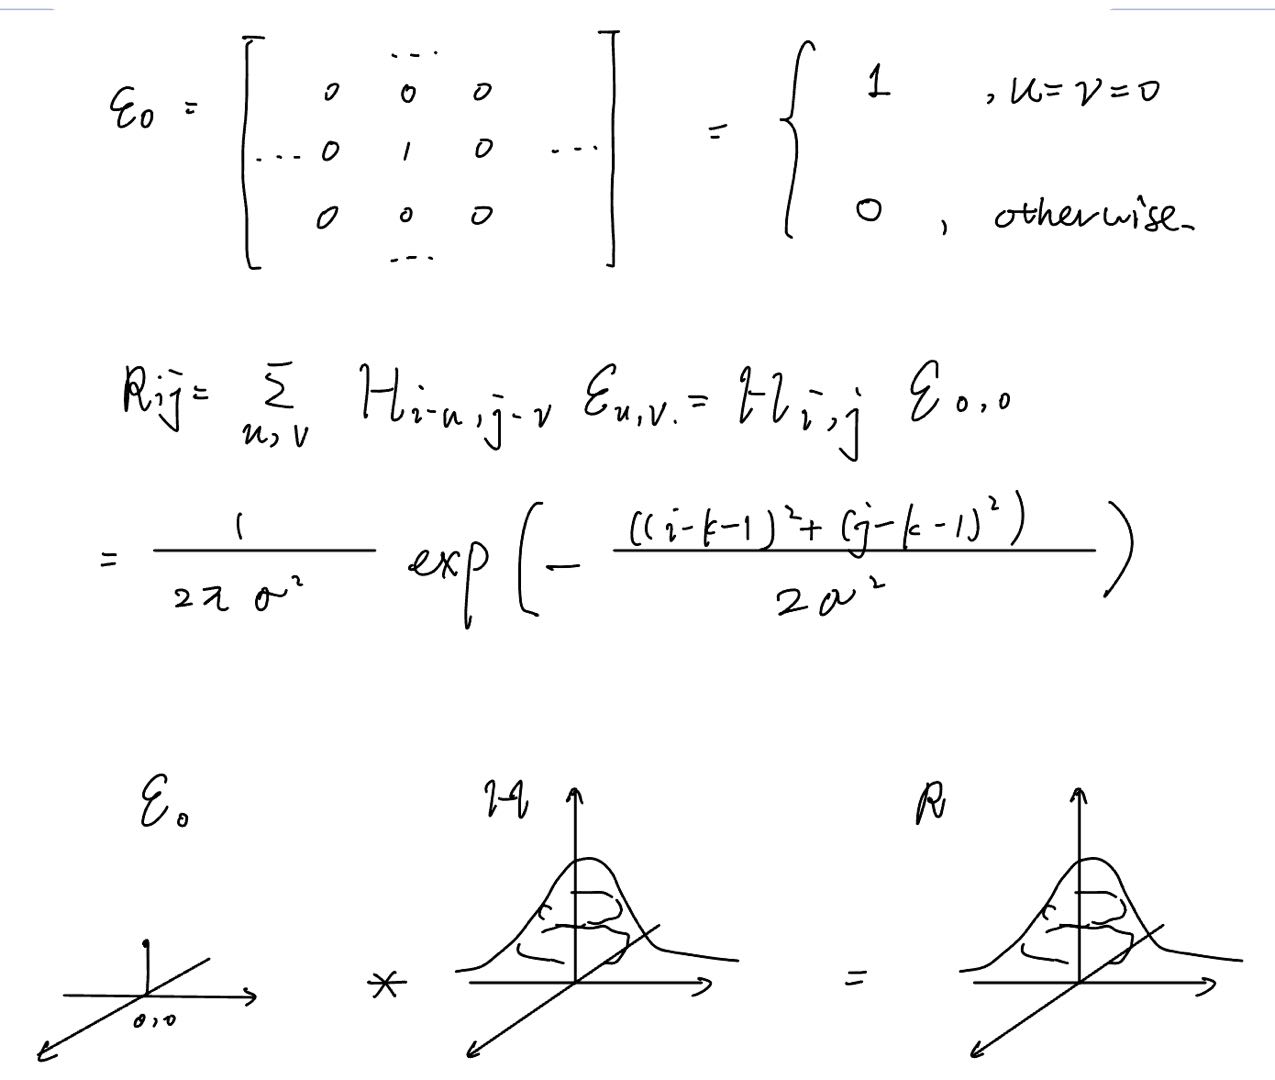 ε₀ = [ ... 0 0 0 ... 0 1 0 ... 0 0 0 ... ] = { 1 , u = v = 0
0 , otherwise.
Rij = Σ u,v H i-u, j-v ε u,v. = H i,j ε 0,0
= 1 / (2π σ²) exp ( - ((i-k-1)² + (j-k-1)²) / 2σ² )
ε₀ H R
0,0 * =